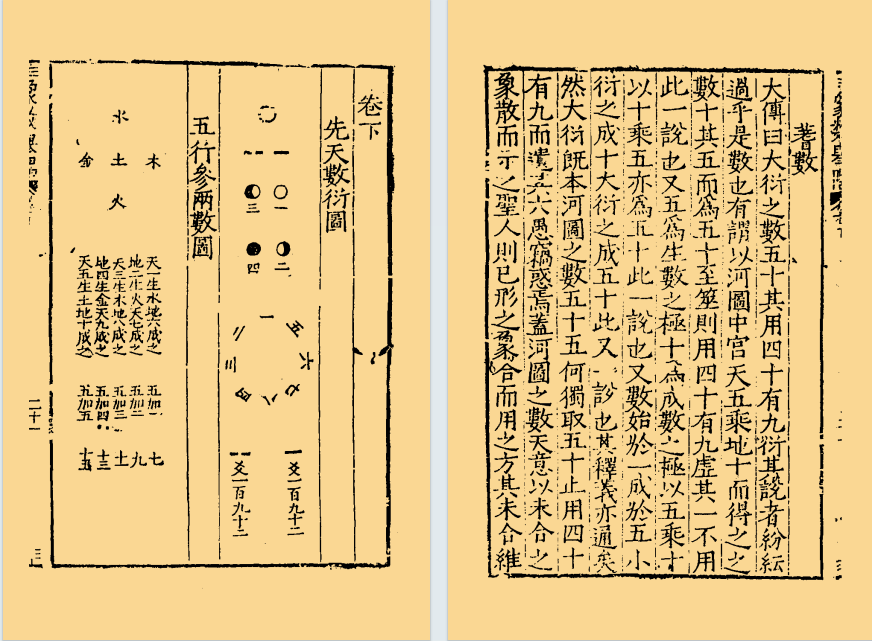 蓍數
大傳曰大衍之數五十其用四十有九衍其說者紛紜
過乎是數也有謂以河圖中宮天五乘地十而得之之
數十其五而為五十至筮則用四十有九虛其一不用
此一說也又五為生數之極十為成數之極以五乘十
以十乘五亦為五十此一說也又數始於一成於五小
衍之成十大衍之成五十此又一說也其釋義亦通矣
然大衍既本河圖之數五十五何獨取五十止用四十
有九而遺其六愚竊惑焉蓋河圖之數天意以未合之
象散而示之聖人則已形之象合而用之方其未合維
卷下
先天數衍圖
一
二
三
四
一
五
六
七
八
四
三
二
爻一百九十二
爻一百九十二
五行參兩數圖
木
水土火
金
天一生水地六成之 五加一 七
地二生火天七成之 五加二 九
天三生木地八成之 五加三 土
地四生金天九成之 五加四 十三
天五生土地十成之 五加五 十五
二十一